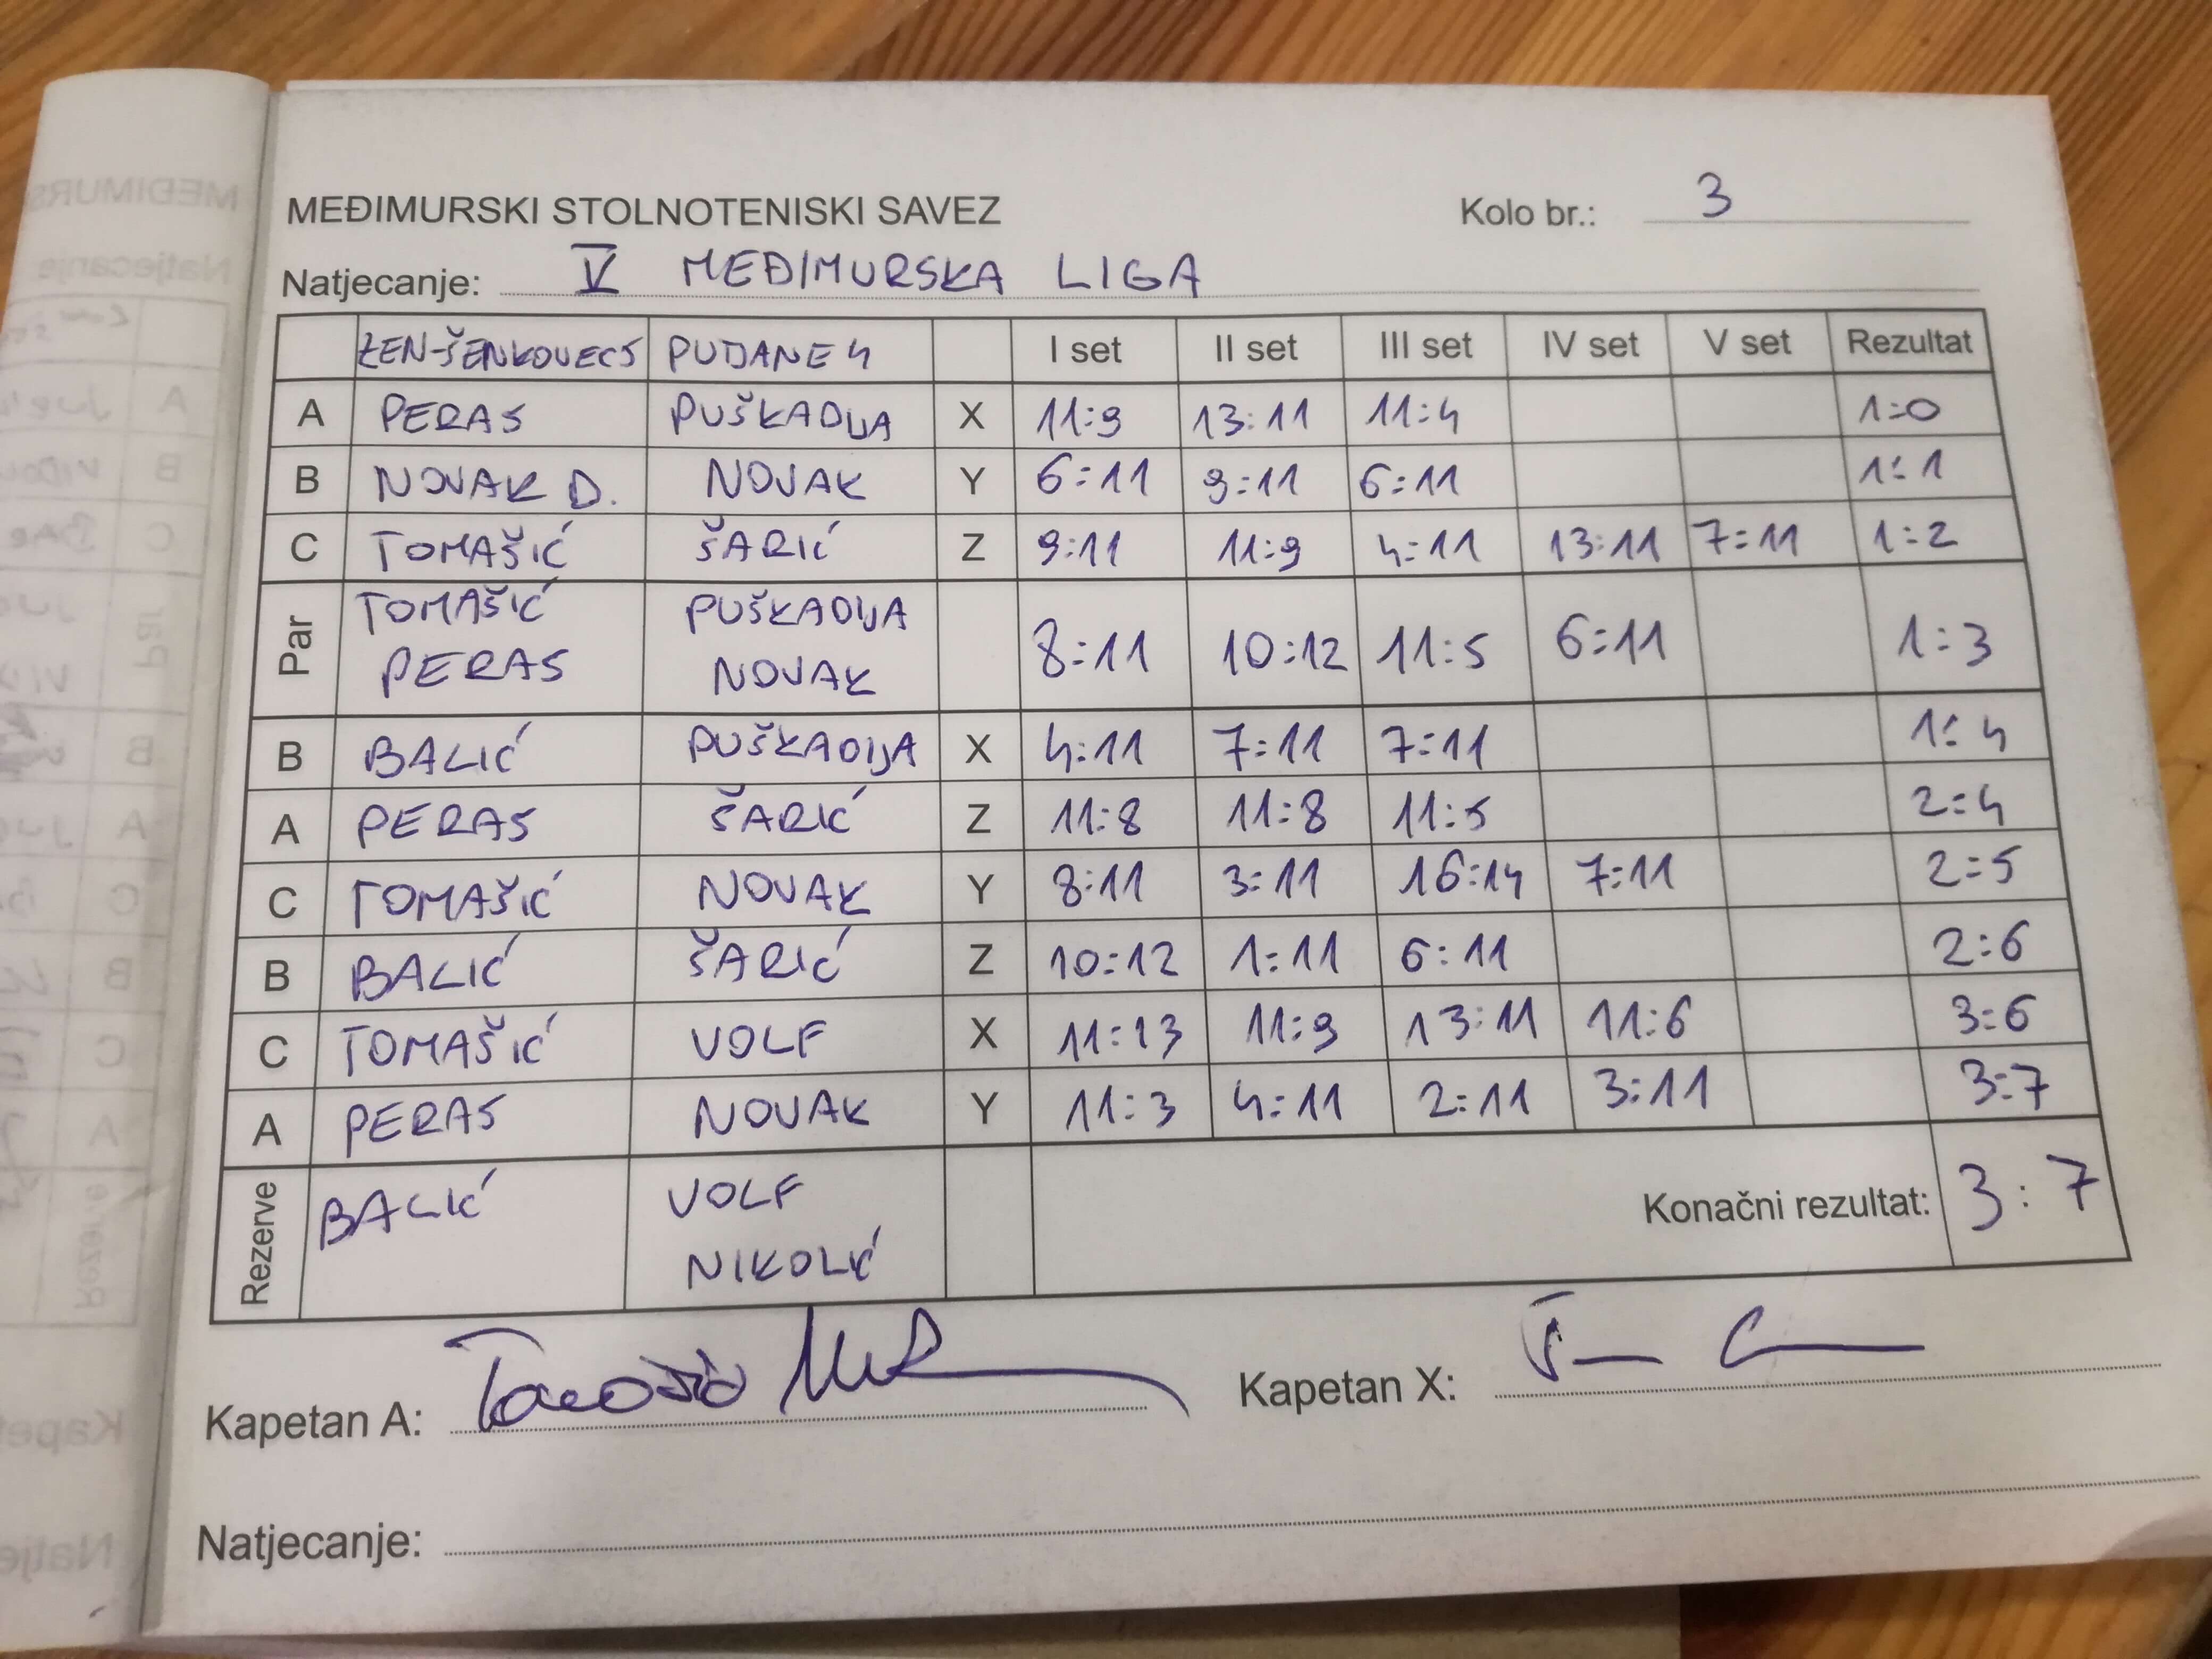 MEĐIMURSKI STOLNOTENISKI SAVEZ Kolo br.: 3
Natjecanje: V MEĐIMURSKA LIGA
ŽEN-ŠENKOVEC 5 PUTJANE 4 I set II set III set IV set V set Rezultat
A PERAS PUŠKADIJA X 11:9 13:11 11:4 1:0
B NOVAK D. NOVAK Y 6:11 9:11 6:11 1:1
C TOMAŠIĆ ŠARIĆ Z 9:11 11:9 4:11 13:11 7:11 1:2
Par TOMAŠIĆ PUŠKADIJA 8:11 10:12 11:5 6:11 1:3
PERAS NOVAK
B BALIĆ PUŠKADIJA X 4:11 7:11 7:11 1:4
A PERAS ŠARIĆ Z 11:8 11:8 11:5 2:4
C TOMAŠIĆ NOVAK Y 8:11 3:11 16:14 7:11 2:5
B BALIĆ ŠARIĆ Z 10:12 1:11 6:11 2:6
C TOMAŠIĆ VOLF X 11:13 11:9 13:11 11:6 3:6
A PERAS NOVAK Y 11:3 4:11 2:11 3:11 3:7
Rezerve BALIĆ VOLF Konačni rezultat: 3:7
NIKOLIĆ
Kapetan A: Tomašić Kapetan X:
Natjecanje: